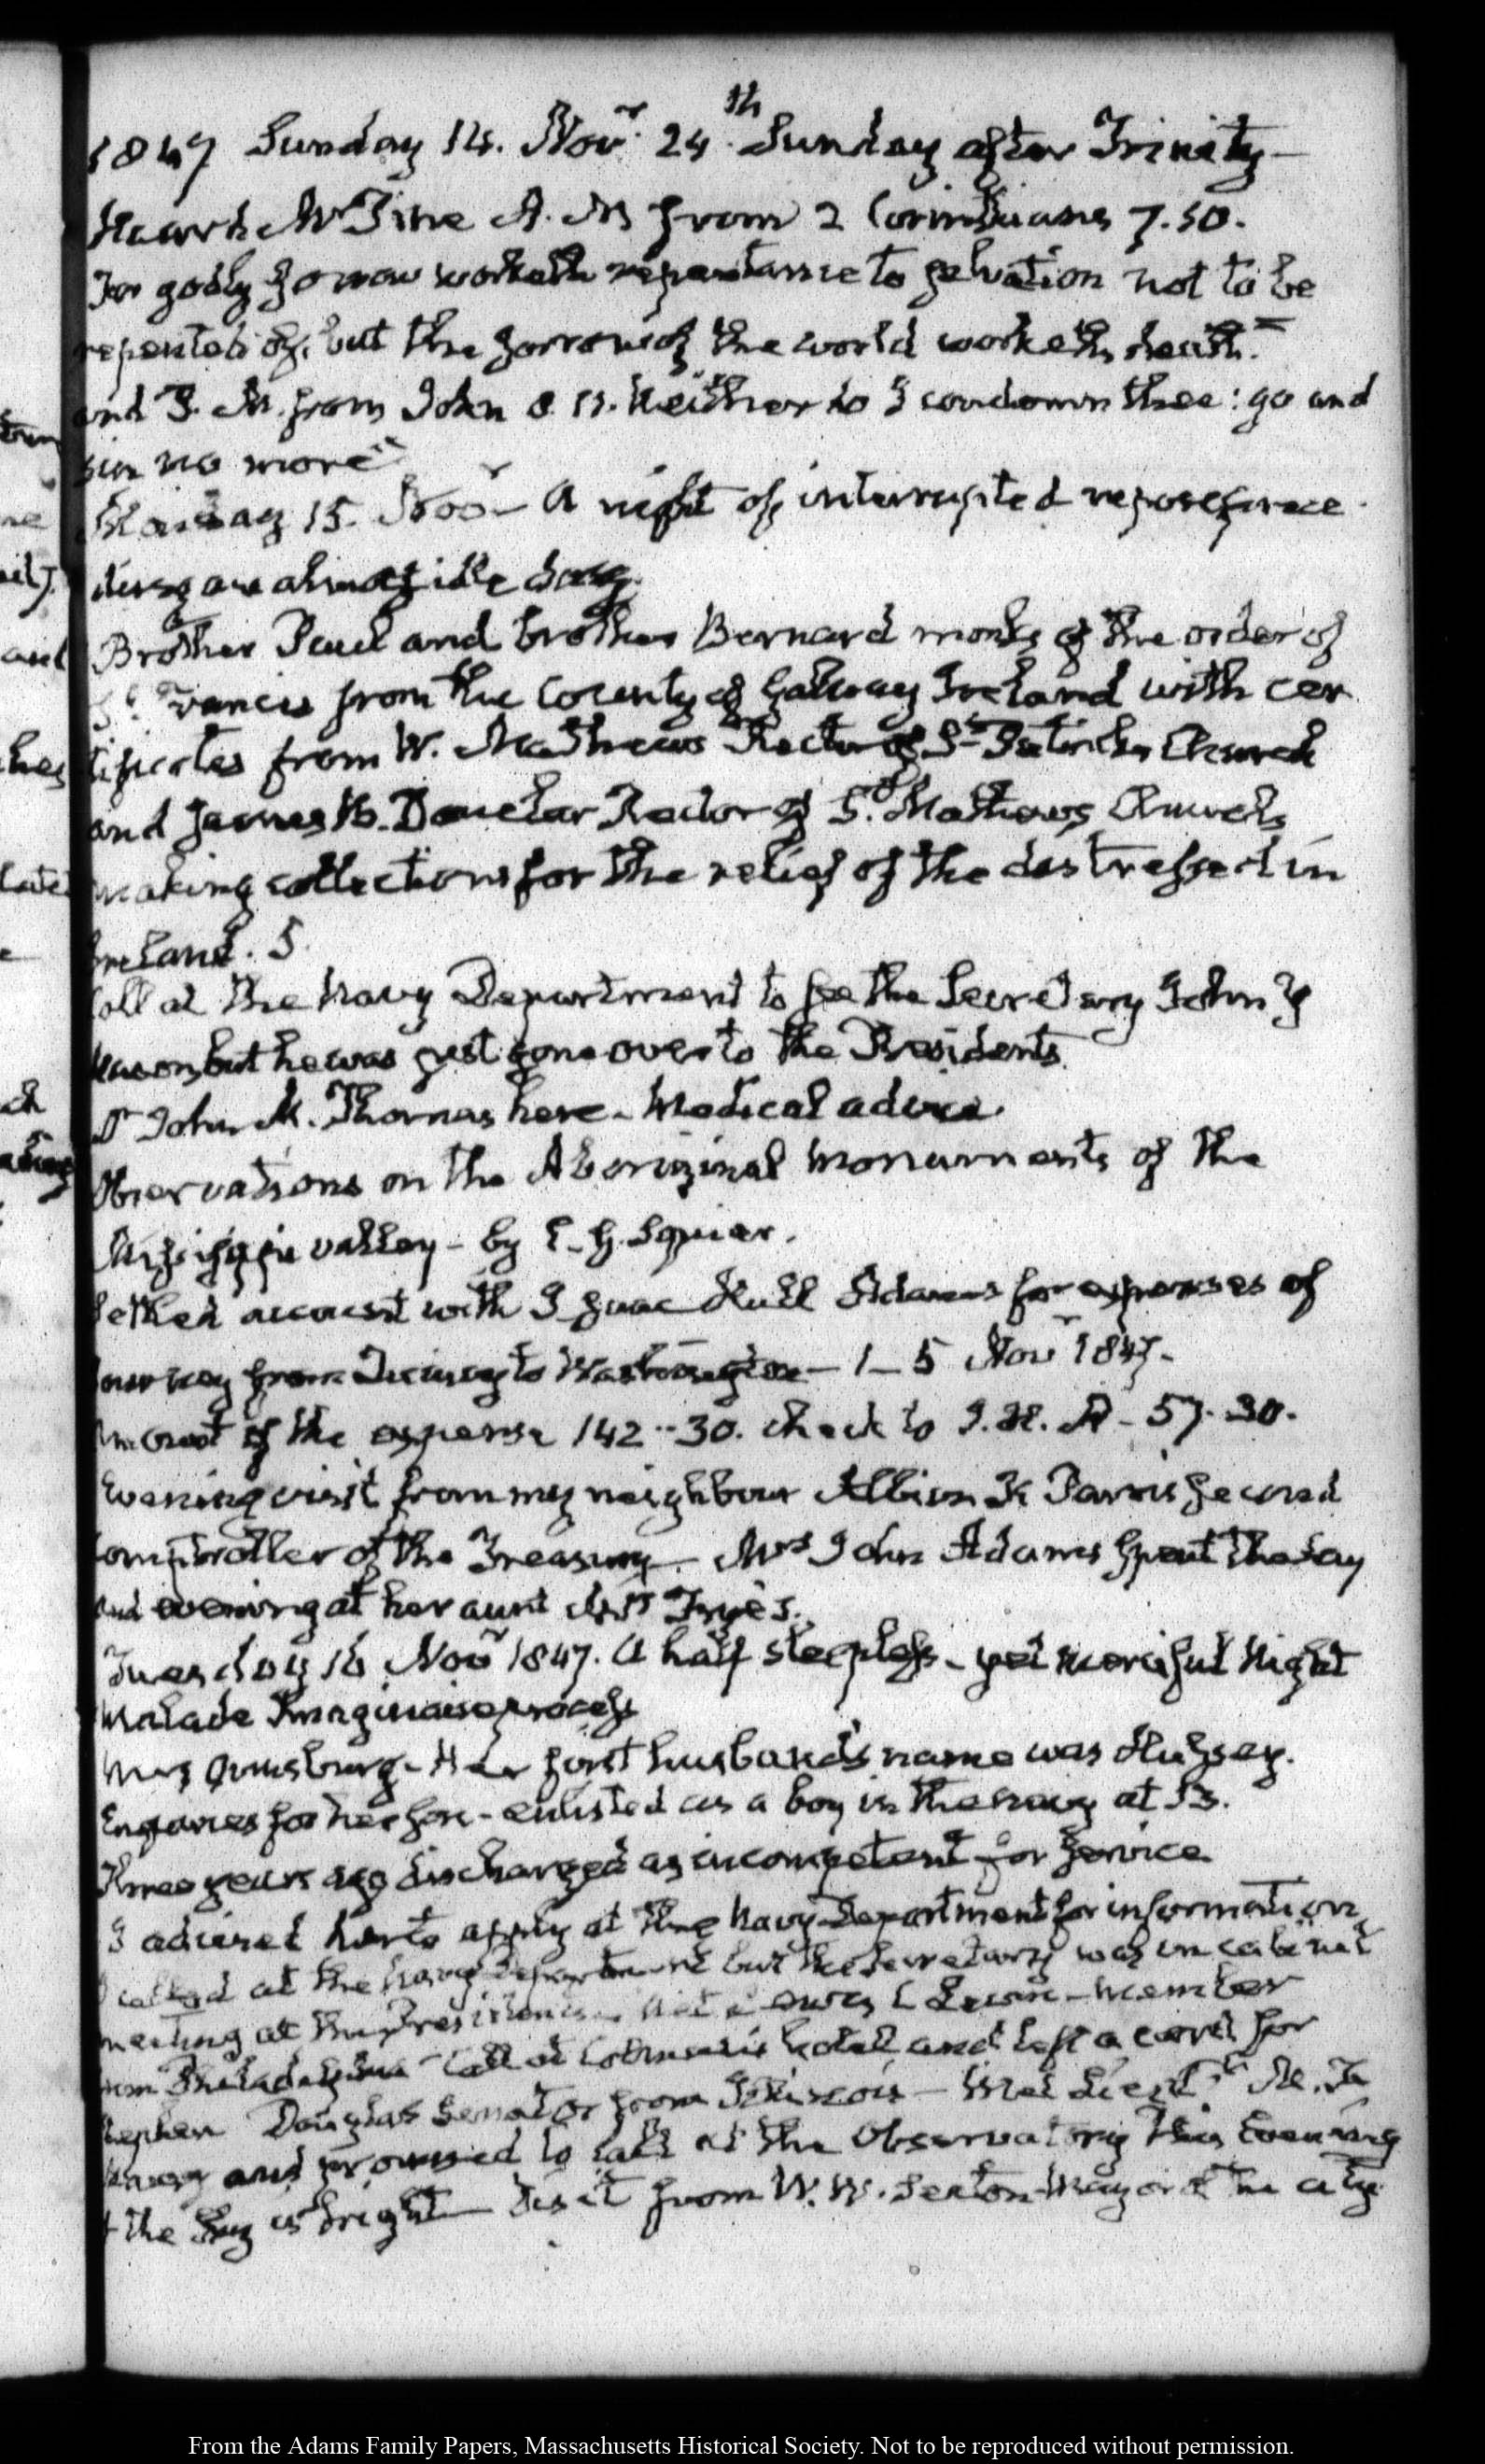 1847 Sunday 14. Nov.r 24.th Sunday after Trinity—
Heard Mr Pine A. M from 2 Corinthians 7.10.
For godly sorrow worketh repentance to salvation not to be
repented of, but the sorrow of the world worketh death."
and P. M. from John 8. 11. Neither do I condemn thee: go and
sin no more"
Monday 15. Nov.r — A night of interrupted repose
an almost idle day.
Brother Paul and brother Bernard monks of the order of
St. Francis from the County of Galway Ireland with cer
tificates from W. Mathews Rector of St Patricks Church
and James B. Donelan Rector of St. Mathews Church
making collections for the relief of the distressed in
Ireland. 5.
Call at the Navy Department to see the Secretary John Y
Mason but he was just gone over to the Presidents
Dr John M. Thomas here — Medical advice.
Observations on the Aboriginal monuments of the
Missisippi valley — by E. G. Squier.
Settled account with Isaac Hull Adams for expenses of
journey from Quincy to Washington — 1 — 5 Nov.r 1847.
Amount of the expense 142..30. check to I. H. A — 57.30.
Evening visit from my neighbour Albion K Parris second
Comptroller of the Treasury — Mrs John Adams spent the day
and evening at her aunt Mrs Frye's.
Tuesday 16 Nov.r 1847. A half sleepless — yet merciful Night
Malade Imaginaire process
Mrs Ormsburg — Her first husband's name was Hussey.
Enquires for her son — enlisted as a boy in the navy at 13.
Three years ago discharged as incompetent for service
I advised her to apply at the Navy Department for information
I called at the Navy Department but the Secretary was in cabinet
meeting at the Presidents — Met Lewis C Levin — member
from Philadelphia — Call at Colemans hotel and left a card for
Stephen Douglas Senator from Illinois — Met Lieut.t M. F.
Maury and promised to call at the Observatory this Evening
if the Sky is bright — Visit from W. W. Seaton Mayor of the city
From the Adams Family Papers, Massachusetts Historical Society. Not to be reproduced without permission.